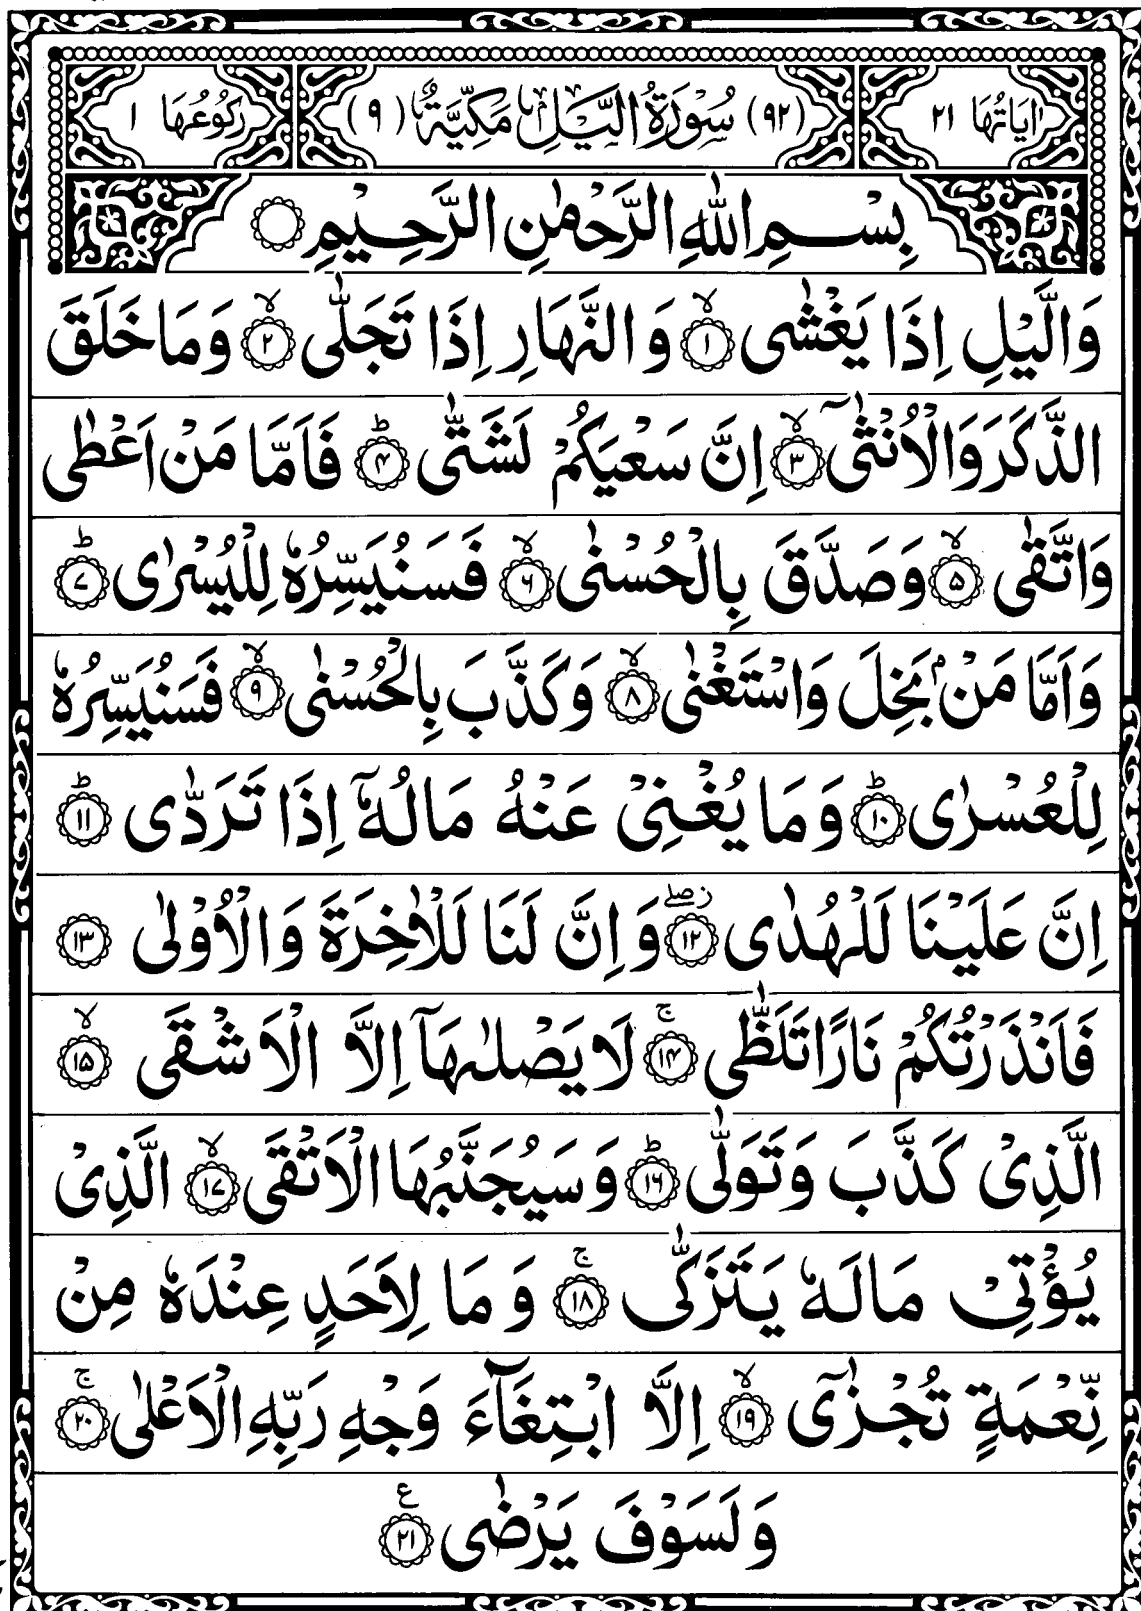 اٰيَاتُهَا ٢١ (٩٢) سُوْرَةُ الَّيْلِ مَكِّيَّةٌ (٩) رُكُوْعُهَا ١
بِسْمِ اللّٰهِ الرَّحْمٰنِ الرَّحِيْمِ ۝
وَالَّيْلِ اِذَا يَغْشٰى ۙ﴿١﴾ وَالنَّهَارِ اِذَا تَجَلّٰى ۙ﴿٢﴾ وَمَا خَلَقَ
الذَّكَرَ وَالْاُنْثٰٓى ۙ﴿٣﴾ اِنَّ سَعْيَكُمْ لَشَتّٰى ؕ﴿۴﴾ فَاَمَّا مَنْ اَعْطٰى
وَاتَّقٰى ۙ﴿۵﴾ وَصَدَّقَ بِالْحُسْنٰى ۙ﴿۶﴾ فَسَنُيَسِّرُهٗ لِلْيُسْرٰى ؕ﴿۷﴾
وَاَمَّا مَنْۢ بَخِلَ وَاسْتَغْنٰى ۙ﴿۸﴾ وَكَذَّبَ بِالْحُسْنٰى ۙ﴿۹﴾ فَسَنُيَسِّرُهٗ
لِلْعُسْرٰى ؕ﴿۱۰﴾ وَمَا يُغْنِىْ عَنْهُ مَالُهٗۤ اِذَا تَرَدّٰى ؕ﴿۱۱﴾
اِنَّ عَلَيْنَا لَلْهُدٰى ز ۖ﴿۱۲﴾ وَاِنَّ لَنَا لَلْاٰخِرَةَ وَالْاُوْلٰى ﴿۱۳﴾
فَاَنْذَرْتُكُمْ نَارًا تَلَظّٰى ۚ﴿۱۴﴾ لَا يَصْلٰىهَاۤ اِلَّا الْاَشْقَى ۙ﴿۱۵﴾
الَّذِىْ كَذَّبَ وَتَوَلّٰى ؕ﴿۱۶﴾ وَسَيُجَنَّبُهَا الْاَتْقَى ۙ﴿۱۷﴾ الَّذِىْ
يُؤْتِىْ مَالَهٗ يَتَزَكّٰى ۚ﴿۱۸﴾ وَمَا لِاَحَدٍ عِنْدَهٗ مِنْ
نِّعْمَةٍ تُجْزٰٓى ۙ﴿۱۹﴾ اِلَّا ابْتِغَآءَ وَجْهِ رَبِّهِ الْاَعْلٰى ۚ﴿۲۰﴾
وَلَسَوْفَ يَرْضٰى ع﴿۲۱﴾